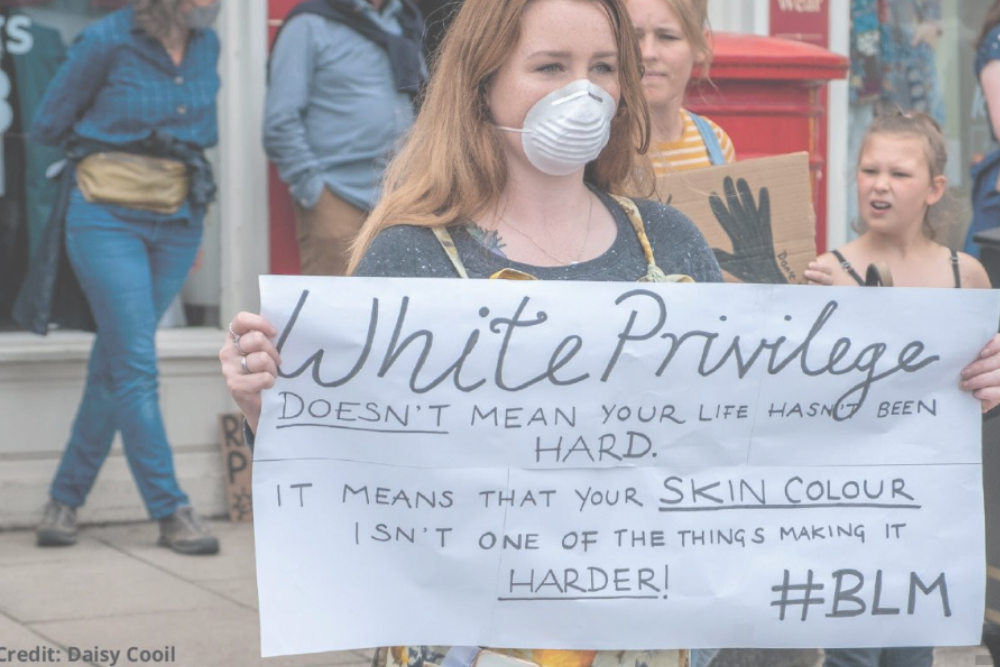 wear
White Privilege
DOESN'T MEAN YOUR LIFE HASN'T BEEN
HARD.
IT MEANS THAT YOUR SKIN COLOUR
ISN'T ONE OF THE THINGS MAKING IT
HARDER!
#BLM
Credit: Daisy Cooil